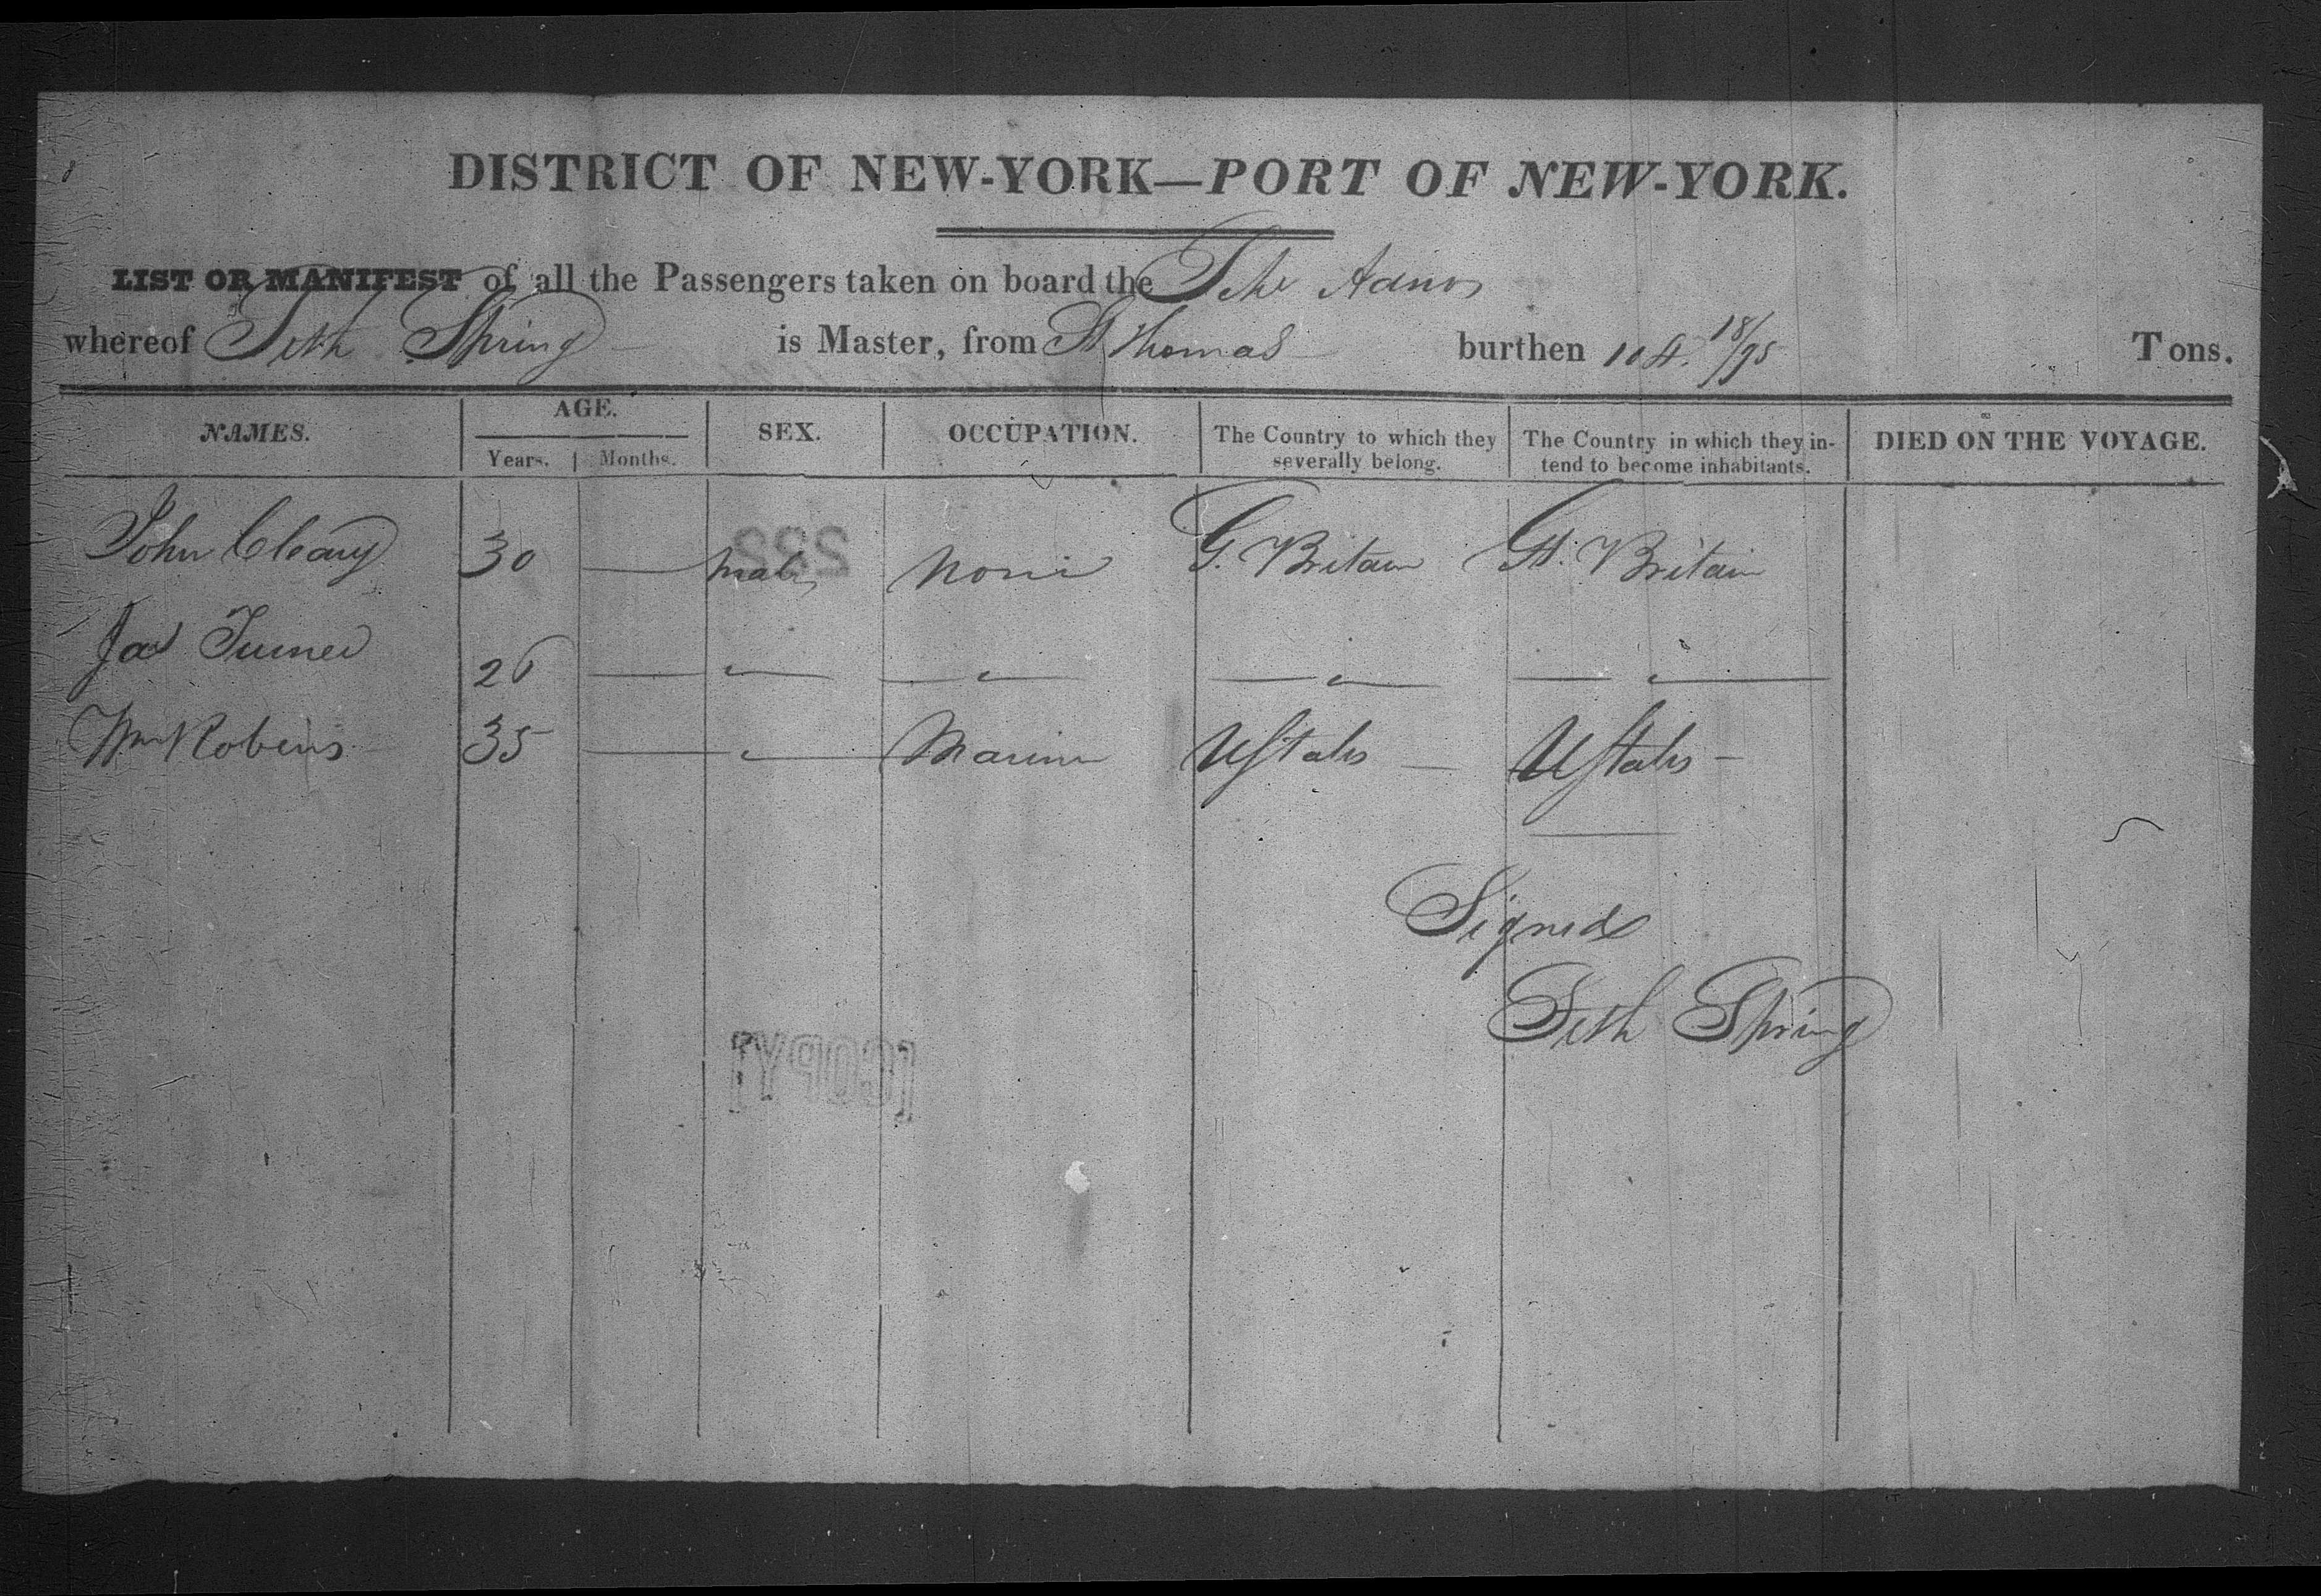 DISTRICT OF NEW-YORK—PORT OF NEW-YORK.
LIST OR MANIFEST of all the Passengers taken on board the Schr
whereof Seth Spring is Master, from St Thomas burthen 104. 18/95 Tons.
NAMES. AGE. SEX. OCCUPATION. The Country to which they severally belong. The Country in which they intend to become inhabitants. DIED ON THE VOYAGE.
Years. Months.
John Cleary 30 — male None G. Britain Gt. Britain
Jas Turner 26 — " — " — — " — — " —
Wm Robens 35 — " — Marine UStates — UStates —
Signed
Seth Spring
222
[COPY]